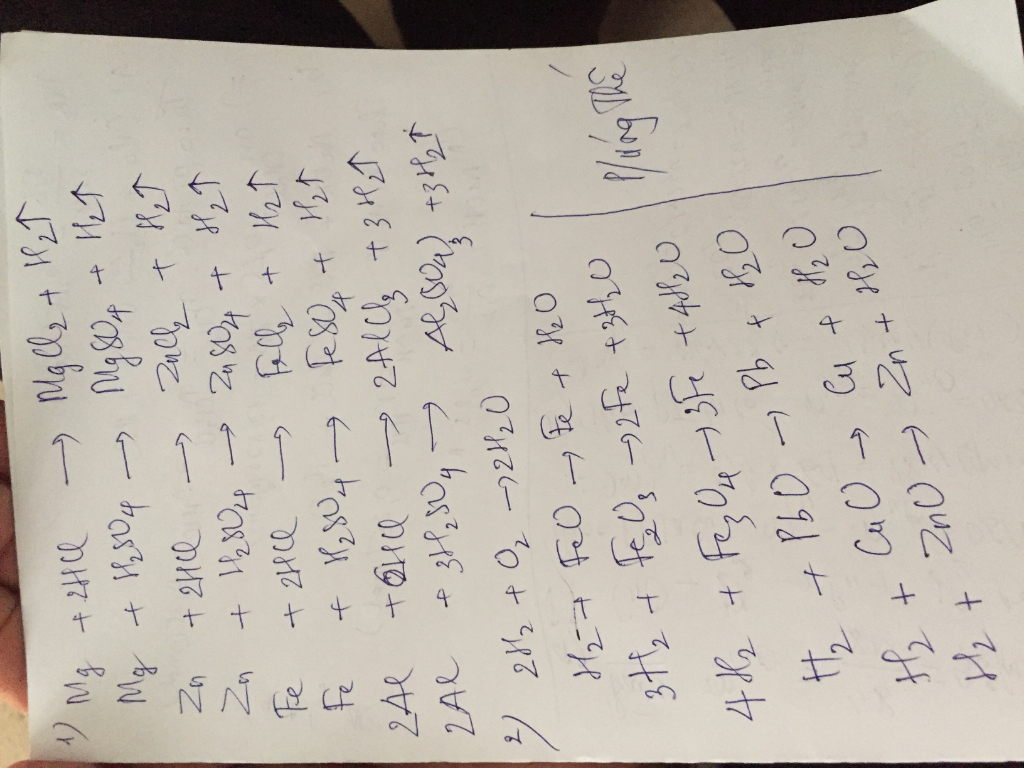 1) Mg + 2HCl → MgCl2 + H2↑
Mg + H2SO4 → MgSO4 + H2↑
Zn + 2HCl → ZnCl2 + H2↑
Zn + H2SO4 → ZnSO4 + H2↑
Fe + 2HCl → FeCl2 + H2↑
Fe + H2SO4 → FeSO4 + H2↑
2Al + 6HCl → 2AlCl3 + 3H2↑
2Al + 3H2SO4 → Al2(SO4)3 + 3H2↑
2) 2H2 + O2 → 2H2O
H2 + FeO → Fe + H2O
3H2 + Fe2O3 → 2Fe + 3H2O
4H2 + Fe3O4 → 3Fe + 4H2O
H2 + PbO → Pb + H2O
H2 + CuO → Cu + H2O
H2 + ZnO → Zn + H2O
P/ứng Thế